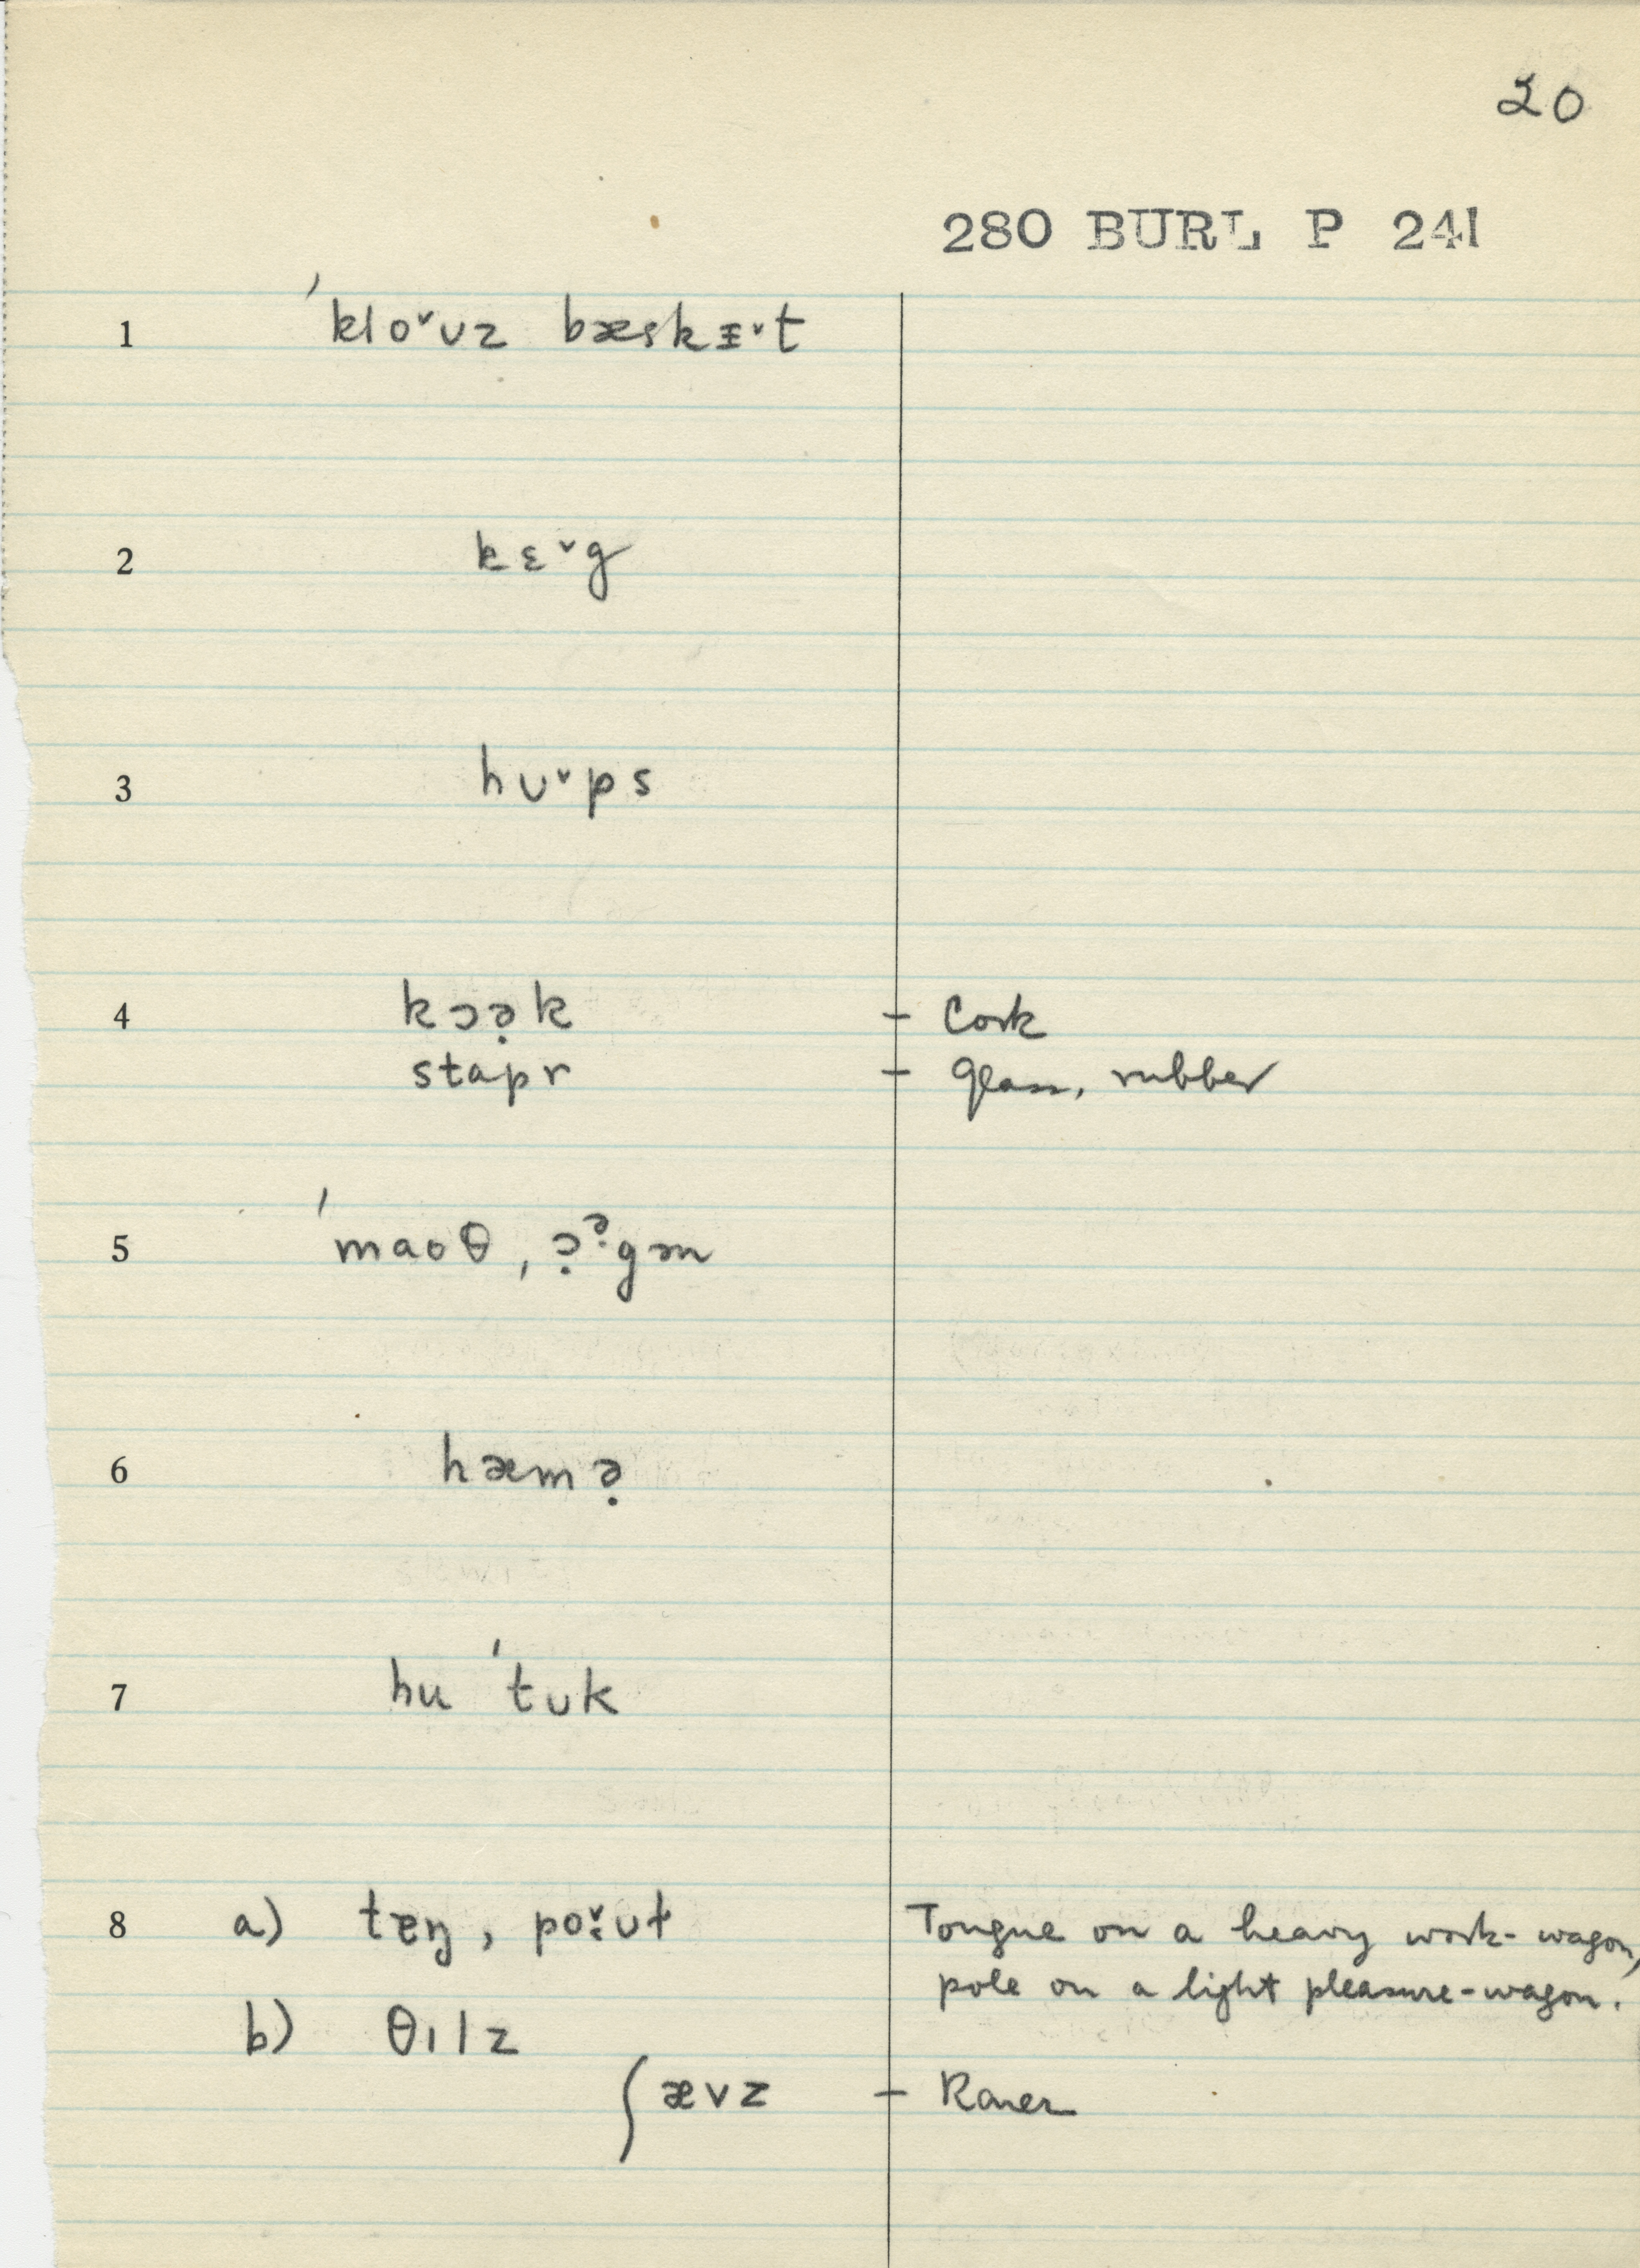 20
280 BURL P 241
1 ˈkloˇʊz bæskɪˇt
2 kɛˇg
3 hʊˇps
4 kɔə̣k - Cork
stapr - glass, rubber
5 ˈmaoθ, ɔ̣ə̣gən
6 hæmə̣
7 hu ˈtʊk
8 a) tɐŋ, poˇʊɫ Tongue on a heavy work-wagon,
pole on a light pleasure-wagon.
b) θɪlz
ʃævz - Rarer